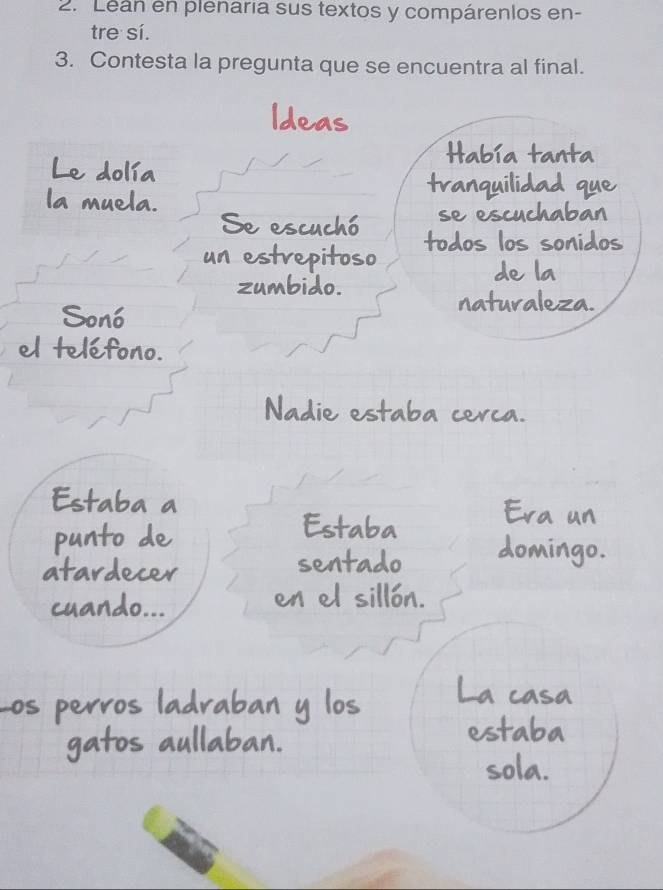 2. Lean en plenaria sus textos y compárenlos en-
tre sí.
3. Contesta la pregunta que se encuentra al final.
Ideas
Le dolía
la muela.
Se escuchó
un estrepitoso
zumbido.
Había tanta
tranquilidad que
se escuchaban
todos los sonidos
de la
naturaleza.
Sonó
el teléfono.
Nadie estaba cerca.
Estaba a
punto de
atardecer
cuando...
Estaba
sentado
en el sillón.
Era un
domingo.
Los perros ladraban y los
gatos aullaban.
La casa
estaba
sola.